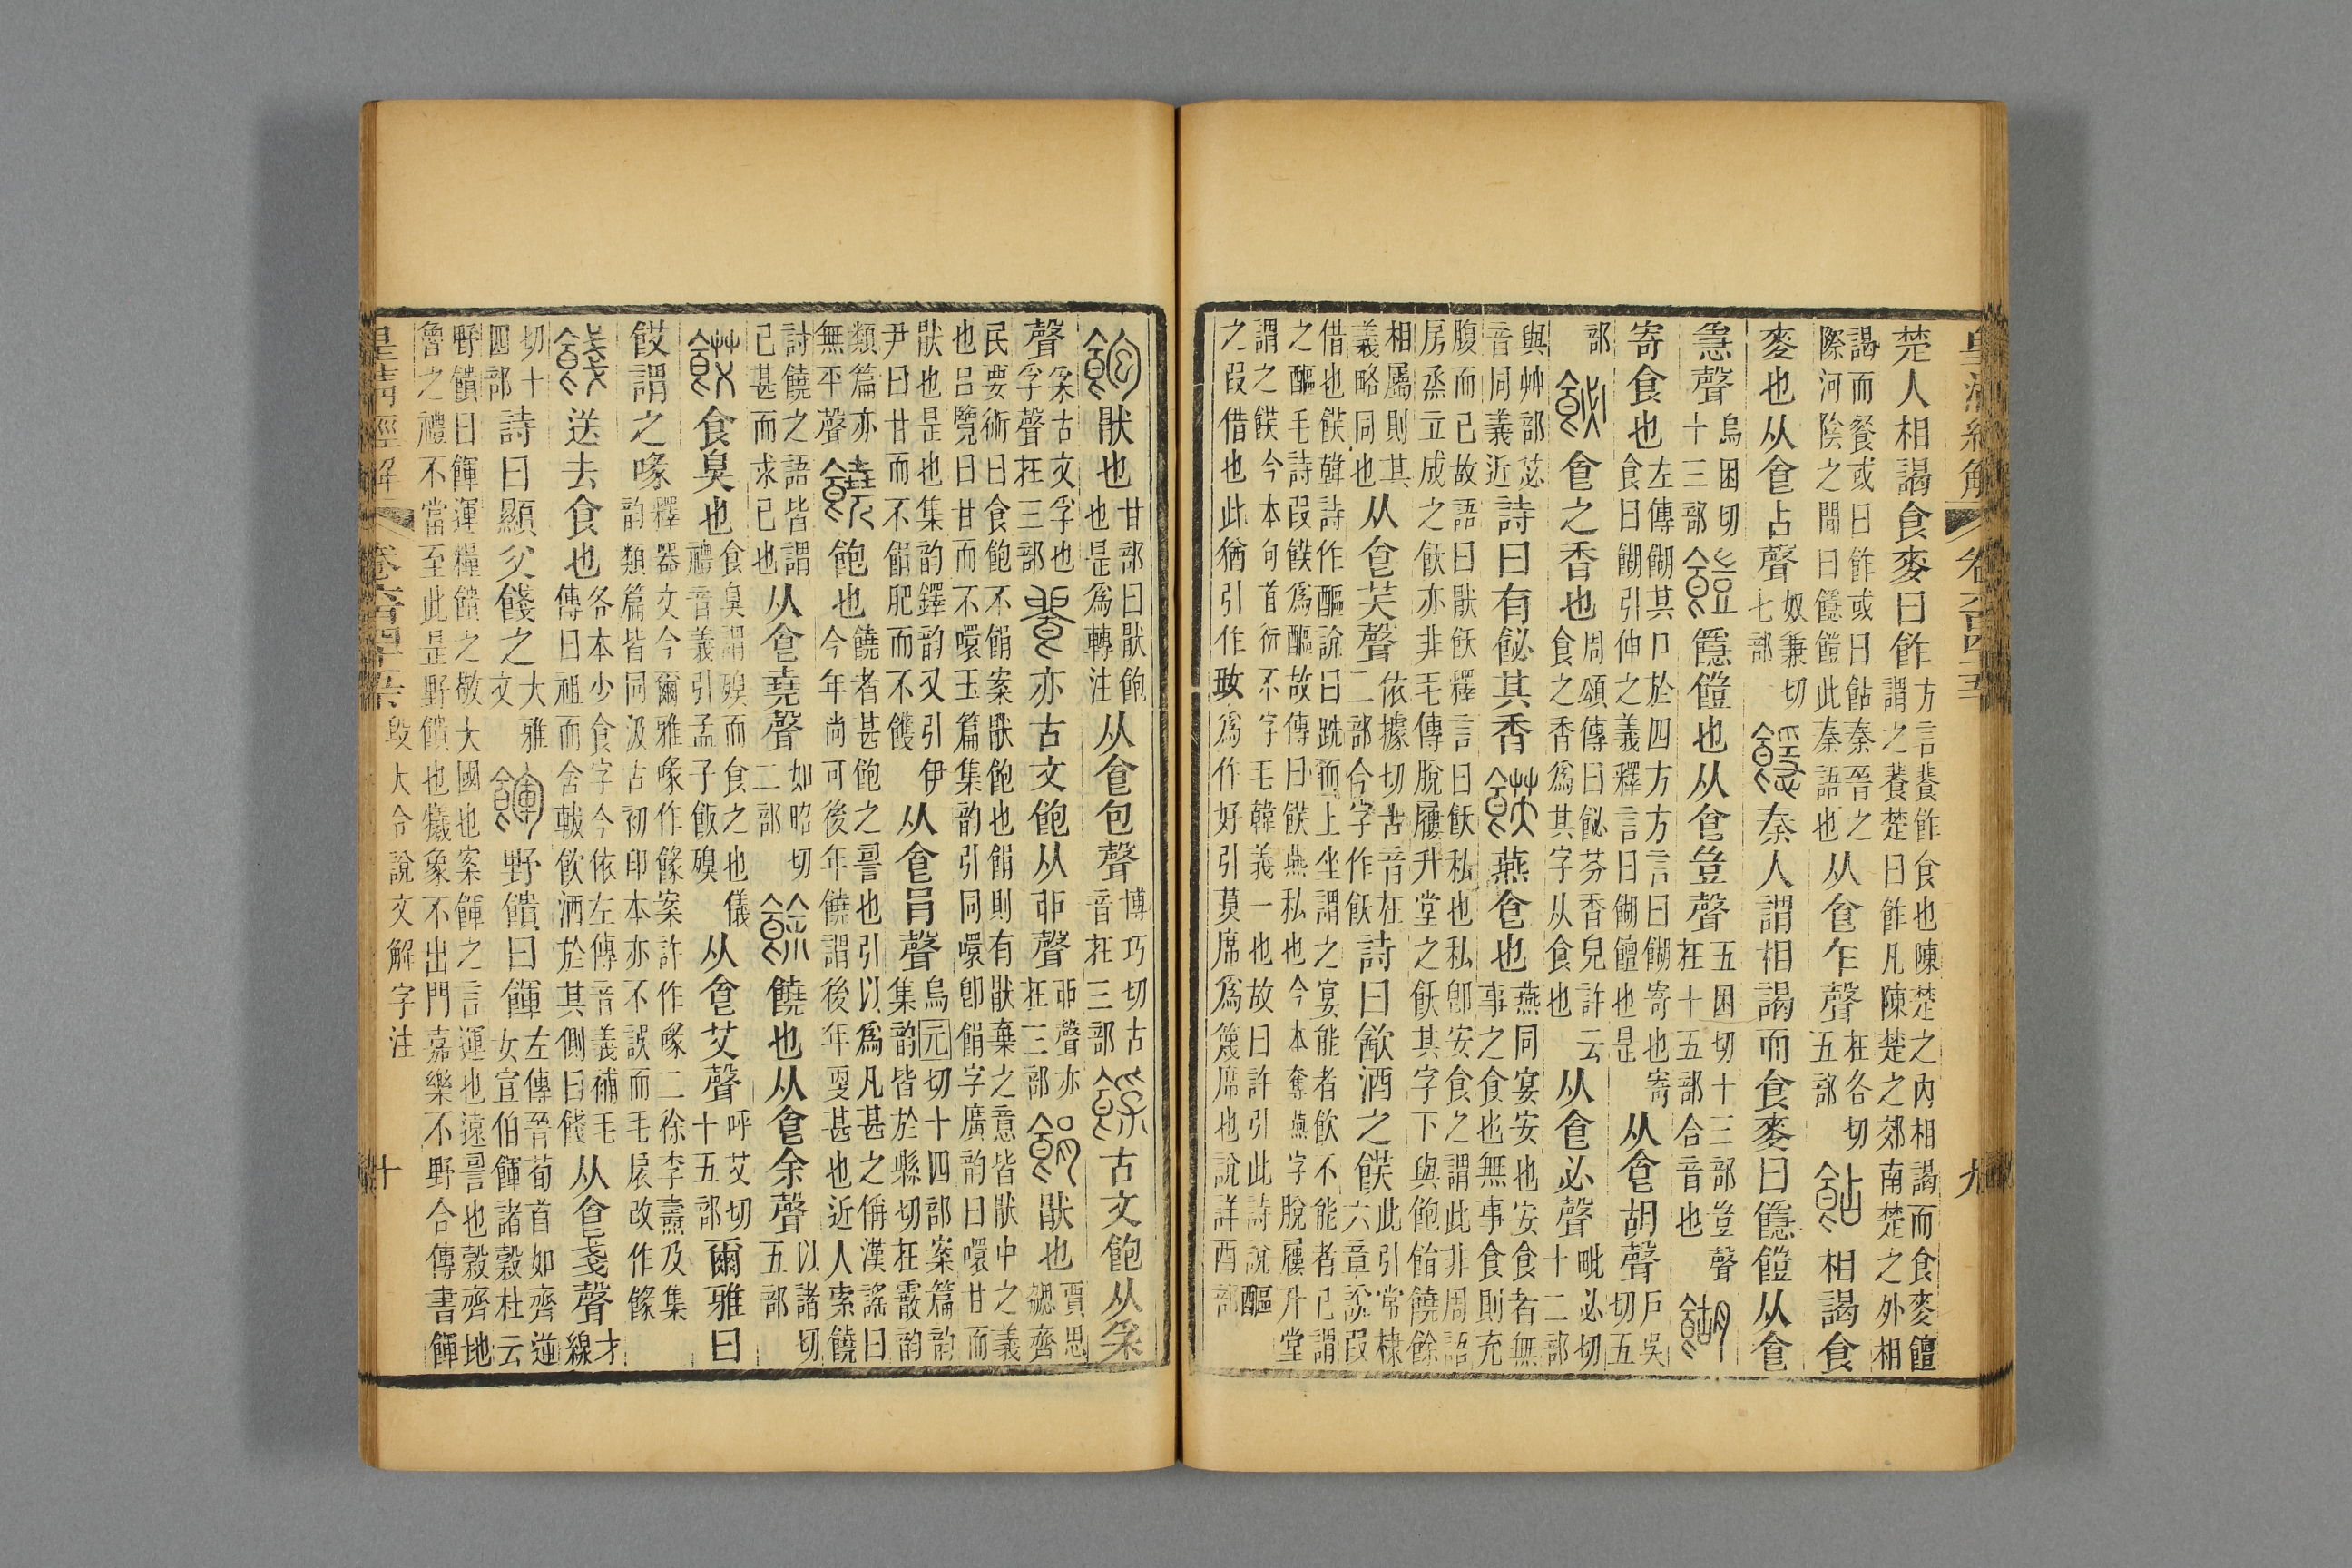 皇清經解 卷六百四十五 九
楚人相謁食麥曰飵方言餥飵食也陳楚之內相謁而食麥饘謂之餥楚曰飵凡陳楚之郊南楚之外相
謁而餐或曰飵或曰䬯秦晉之際河陰之閒曰䭡䭓此秦語也从𠊊乍聲在各切五部䬯相謁食
麥也从𠊊占聲奴兼切七部䭡秦人謂相謁而食麥曰䭡䭓从𠊊
㥯聲烏困切十三部䭓䭡䭓也从𠊊豈聲五困切十三部豈聲在十五部合音也餬
寄食也左傳餬其口於四方方言曰餬寄也寄食曰餬引伸之義釋言曰餬饘也是从𠊊胡聲戶吳切五
部飶𠊊之香也周頌傳曰飶芬香皃許云食之香爲其字从食也从𠊊必聲毗必切十二部
與艸部苾音同義近詩曰有飶其香䬬燕𠊊也燕同宴安也安食者無事之食也無事食則充
腹而已故語曰猒飫釋言曰飫私也私卽安食之謂此非周語房烝立成之飫亦非毛傳脫屨升堂之飫其字下與飽䬼饒餘
相屬則其義略同也从𠊊芺聲依據切古音在二部今字作飫詩曰飮酒之䬬此引常棣六章說叚
借也䬬韓詩作醧說曰跣而上坐謂之宴能者飮不能者已謂之醧毛詩叚䬬爲醧故傳曰䬬燕私也今本奪燕字脫屨升堂
謂之䬬今本句首衍不字毛韓義一也故曰許引此詩說醧之叚借也此猶引作𡚽爲作好引莫席爲蔑席也說詳酉部
飽猒也甘部曰猒飽也是爲轉注从𠊊包聲博巧切古音在三部古文飽从采
聲采古文孚也孚聲在三部亦古文飽从丣聲丣聲亦在三部䬼猒也賈思勰齊
民要術曰食飽不䬼案猒飽也䬼則有猒棄之意皆猒中之義也呂覽曰甘而不噮玉篇集韵引同噮卽䬼字廣韵曰噮甘而
猒也是也集韵鐸韵又引伊尹曰甘而不䬼肥而不𩞾从𠊊肙聲烏元切十四部案篇韵集韵皆於縣切在霰韵
類篇亦無平聲饒飽也饒者甚飽之䛐也引以爲凡甚之偁漢謠曰今年尚可後年饒謂後年更甚也近人索饒
討饒之語皆謂已甚而求已也从𠊊堯聲如昭切二部餘饒也从𠊊余聲以諸切五部
餀食臭也食臭謂殠而食之也儀禮音義引孟子飯殠从𠊊艾聲呼艾切十五部爾雅曰
餀謂之喙釋器文今爾雅喙作餯案許作喙二徐李燾及集韵類篇皆同汲古初印本亦不誤而毛扆改作餯
餞送去食也各本少食字今依左傳音義補毛傳曰祖而舍軷飮酒於其側曰餞从𠊊戔聲才線
切十四部詩曰顯父餞之大雅文餫野饋曰餫左傳晉荀首如齊逆女宣伯餫諸穀杜云
野饋曰餫運糧饋之敬大國也案餫之言運也遠䛐也穀齊地魯之禮不當至此是野饋也犧象不出門嘉樂不野合傳書餫
皇淸經解 卷六百四十五 段大令說文解字注 十